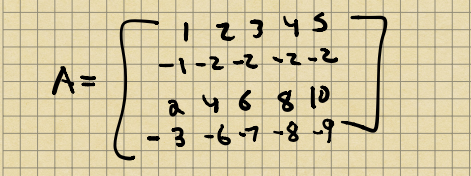 1 2 3 4 5
-1 -2 -2 -2 -2
A =
2 4 6 8 10
-3 -6 -7 -8 -9